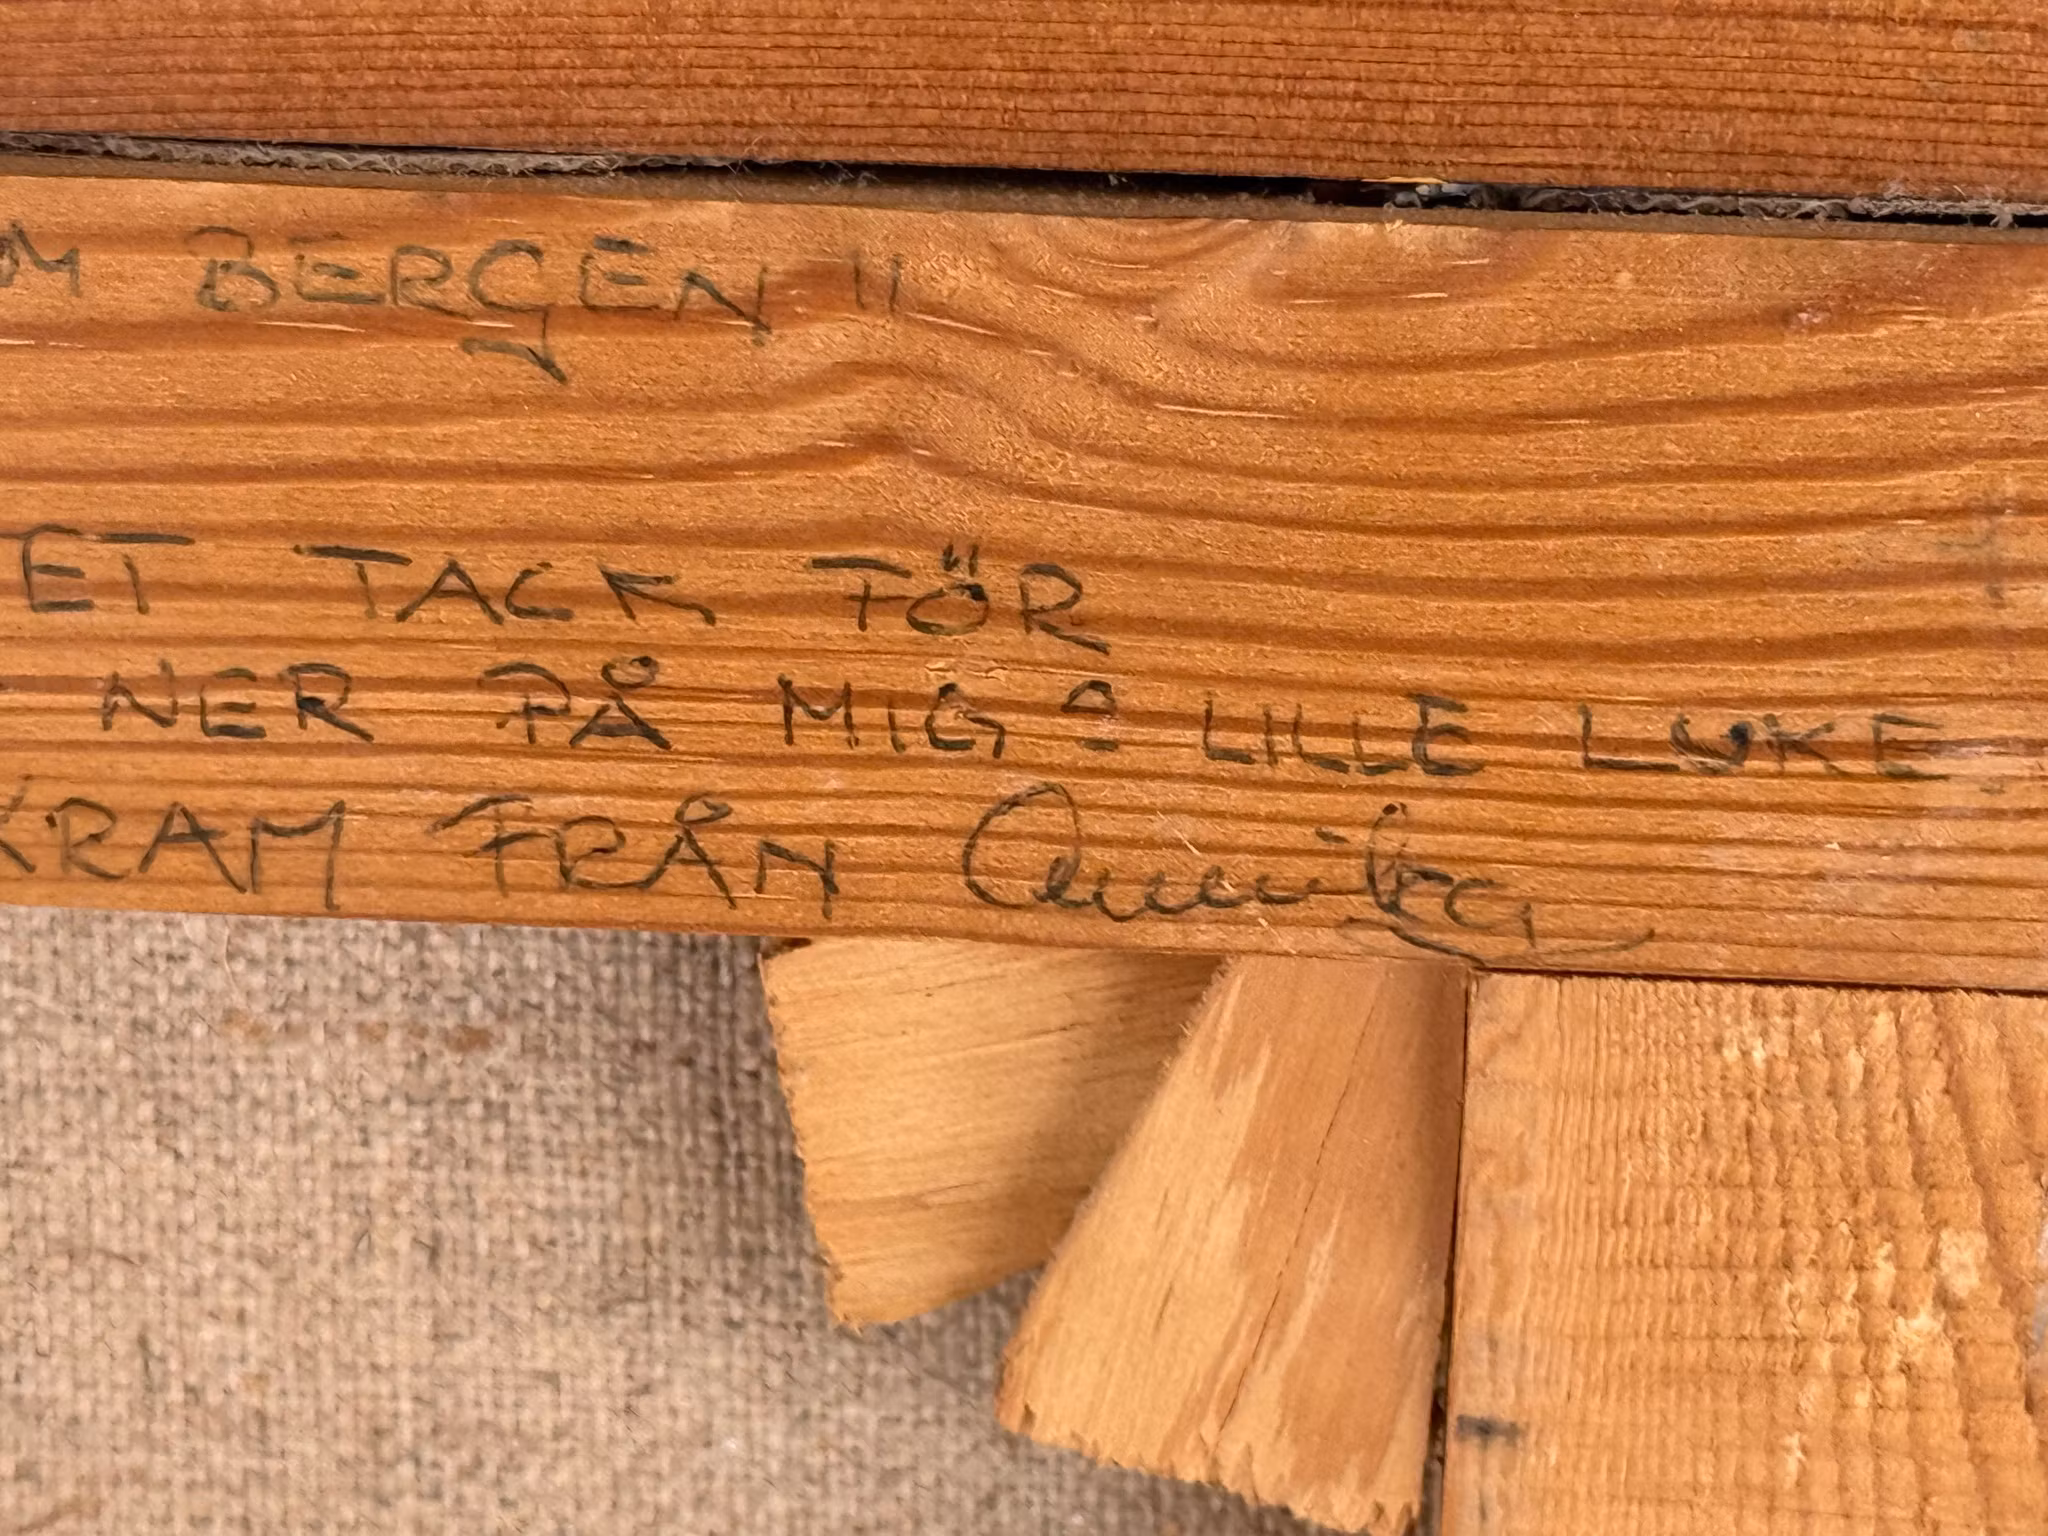 M BERGEN"
ET TACK FÖR
NER PÅ MIG & LILLE LUKE
KRAM FRÅN